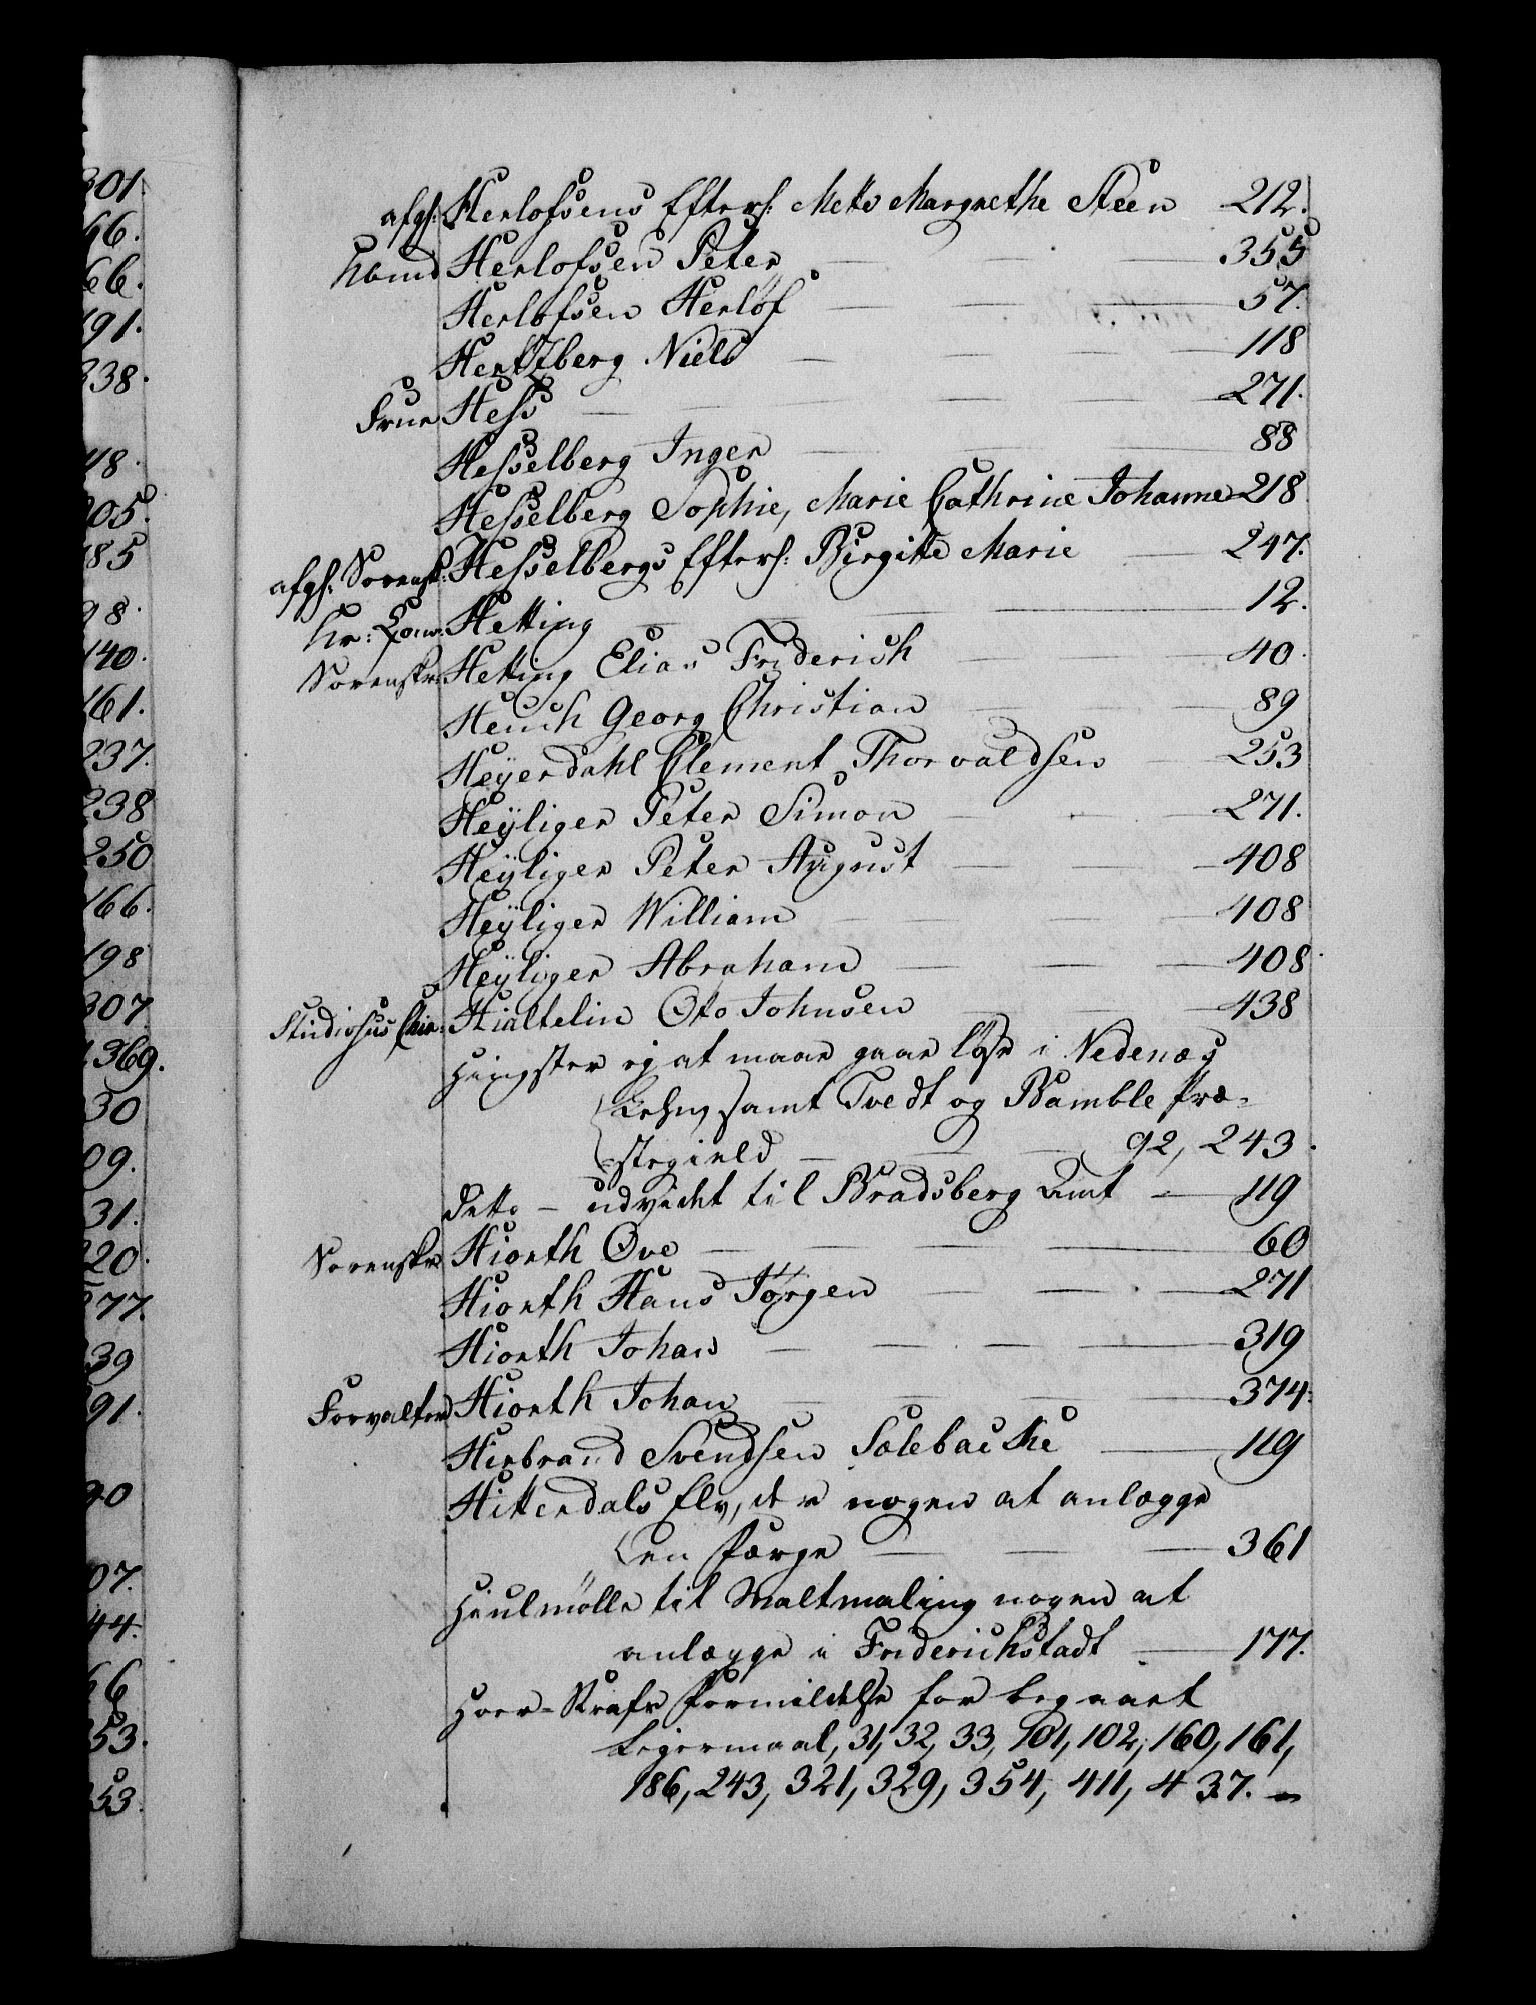 301.
66.
66.
191.
338.
48.
205.
185
98.
140.
161.
237.
238
250
166.
198
307
369.
30
09.
31.
220.
277.
39
91.
40
07.
44.
66
53.
53.
afg: Herlofsens Efterl: Mette Margrethe Steen 212.
Kbmd Herlofsen Peter 355
Herlofsen Herlof 57.
Hertzberg Niels 118
Frue Hess 271.
Hesselberg Inger 88
Hesselberg Sophie, Marie Cathrine Johanne 218
afg: Sorensk: Hesselbergs Efterl: Birgitte Marie 247.
Hr: Hetting 12.
Sorenskr: Hetting Elias Friderich 40.
Heuch Georg Christian 89
Heÿerdahl Clement Thorvaldsen 253
Heÿliger Peter Simon 271.
Heÿliger Peter August 408
Heÿliger William 408
Heÿliger Abraham 408.
Studiosus Chir: Hialtelin Oto Johnsen 438
Hingster ej at maae gaae løse i Nedenæs
Lehn, samt Tvedt og Bamble Præ-
stegield 92, 243.
Ditto - udvidet til Bradsberg Amt 119
Sorenskr Hiorth Ove 60
Hiorth Hans Jörgen 271
Hiorth Johan 319
Forvalter Hiorth Johan 374.
Hirbrand Svendsen Solebakke 119
Hitterdals Elv, der nogen at anlægge
en Færge 361
Hiulmölle til Maltmaling nogen at
anlægge i Friderichstadt 177.
Hoer-Straffe Formildelse for begaaet
Leiermaal, 31, 32, 33, 101, 102, 160, 161,
186, 243, 321, 329, 354, 411, 437.